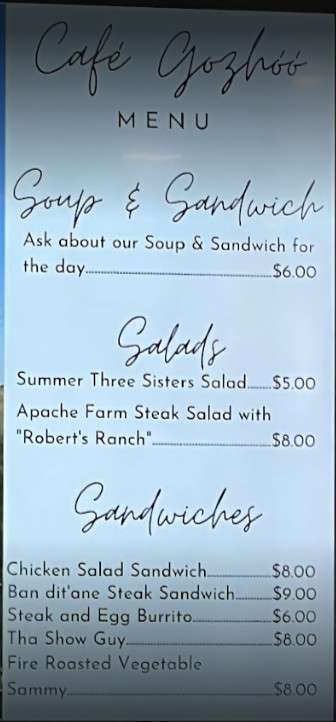 Café Gozhóó
MENU
Soup & Sandwich
Ask about our Soup & Sandwich for
the day......$6.00
Salads
Summer Three Sisters Salad......$5.00
Apache Farm Steak Salad with
"Robert's Ranch"......$8.00
Sandwiches
Chicken Salad Sandwich......$8.00
Ban dit'ane Steak Sandwich......$9.00
Steak and Egg Burrito......$6.00
Tha Show Guy......$8.00
Fire Roasted Vegetable
Sammy......$8.00